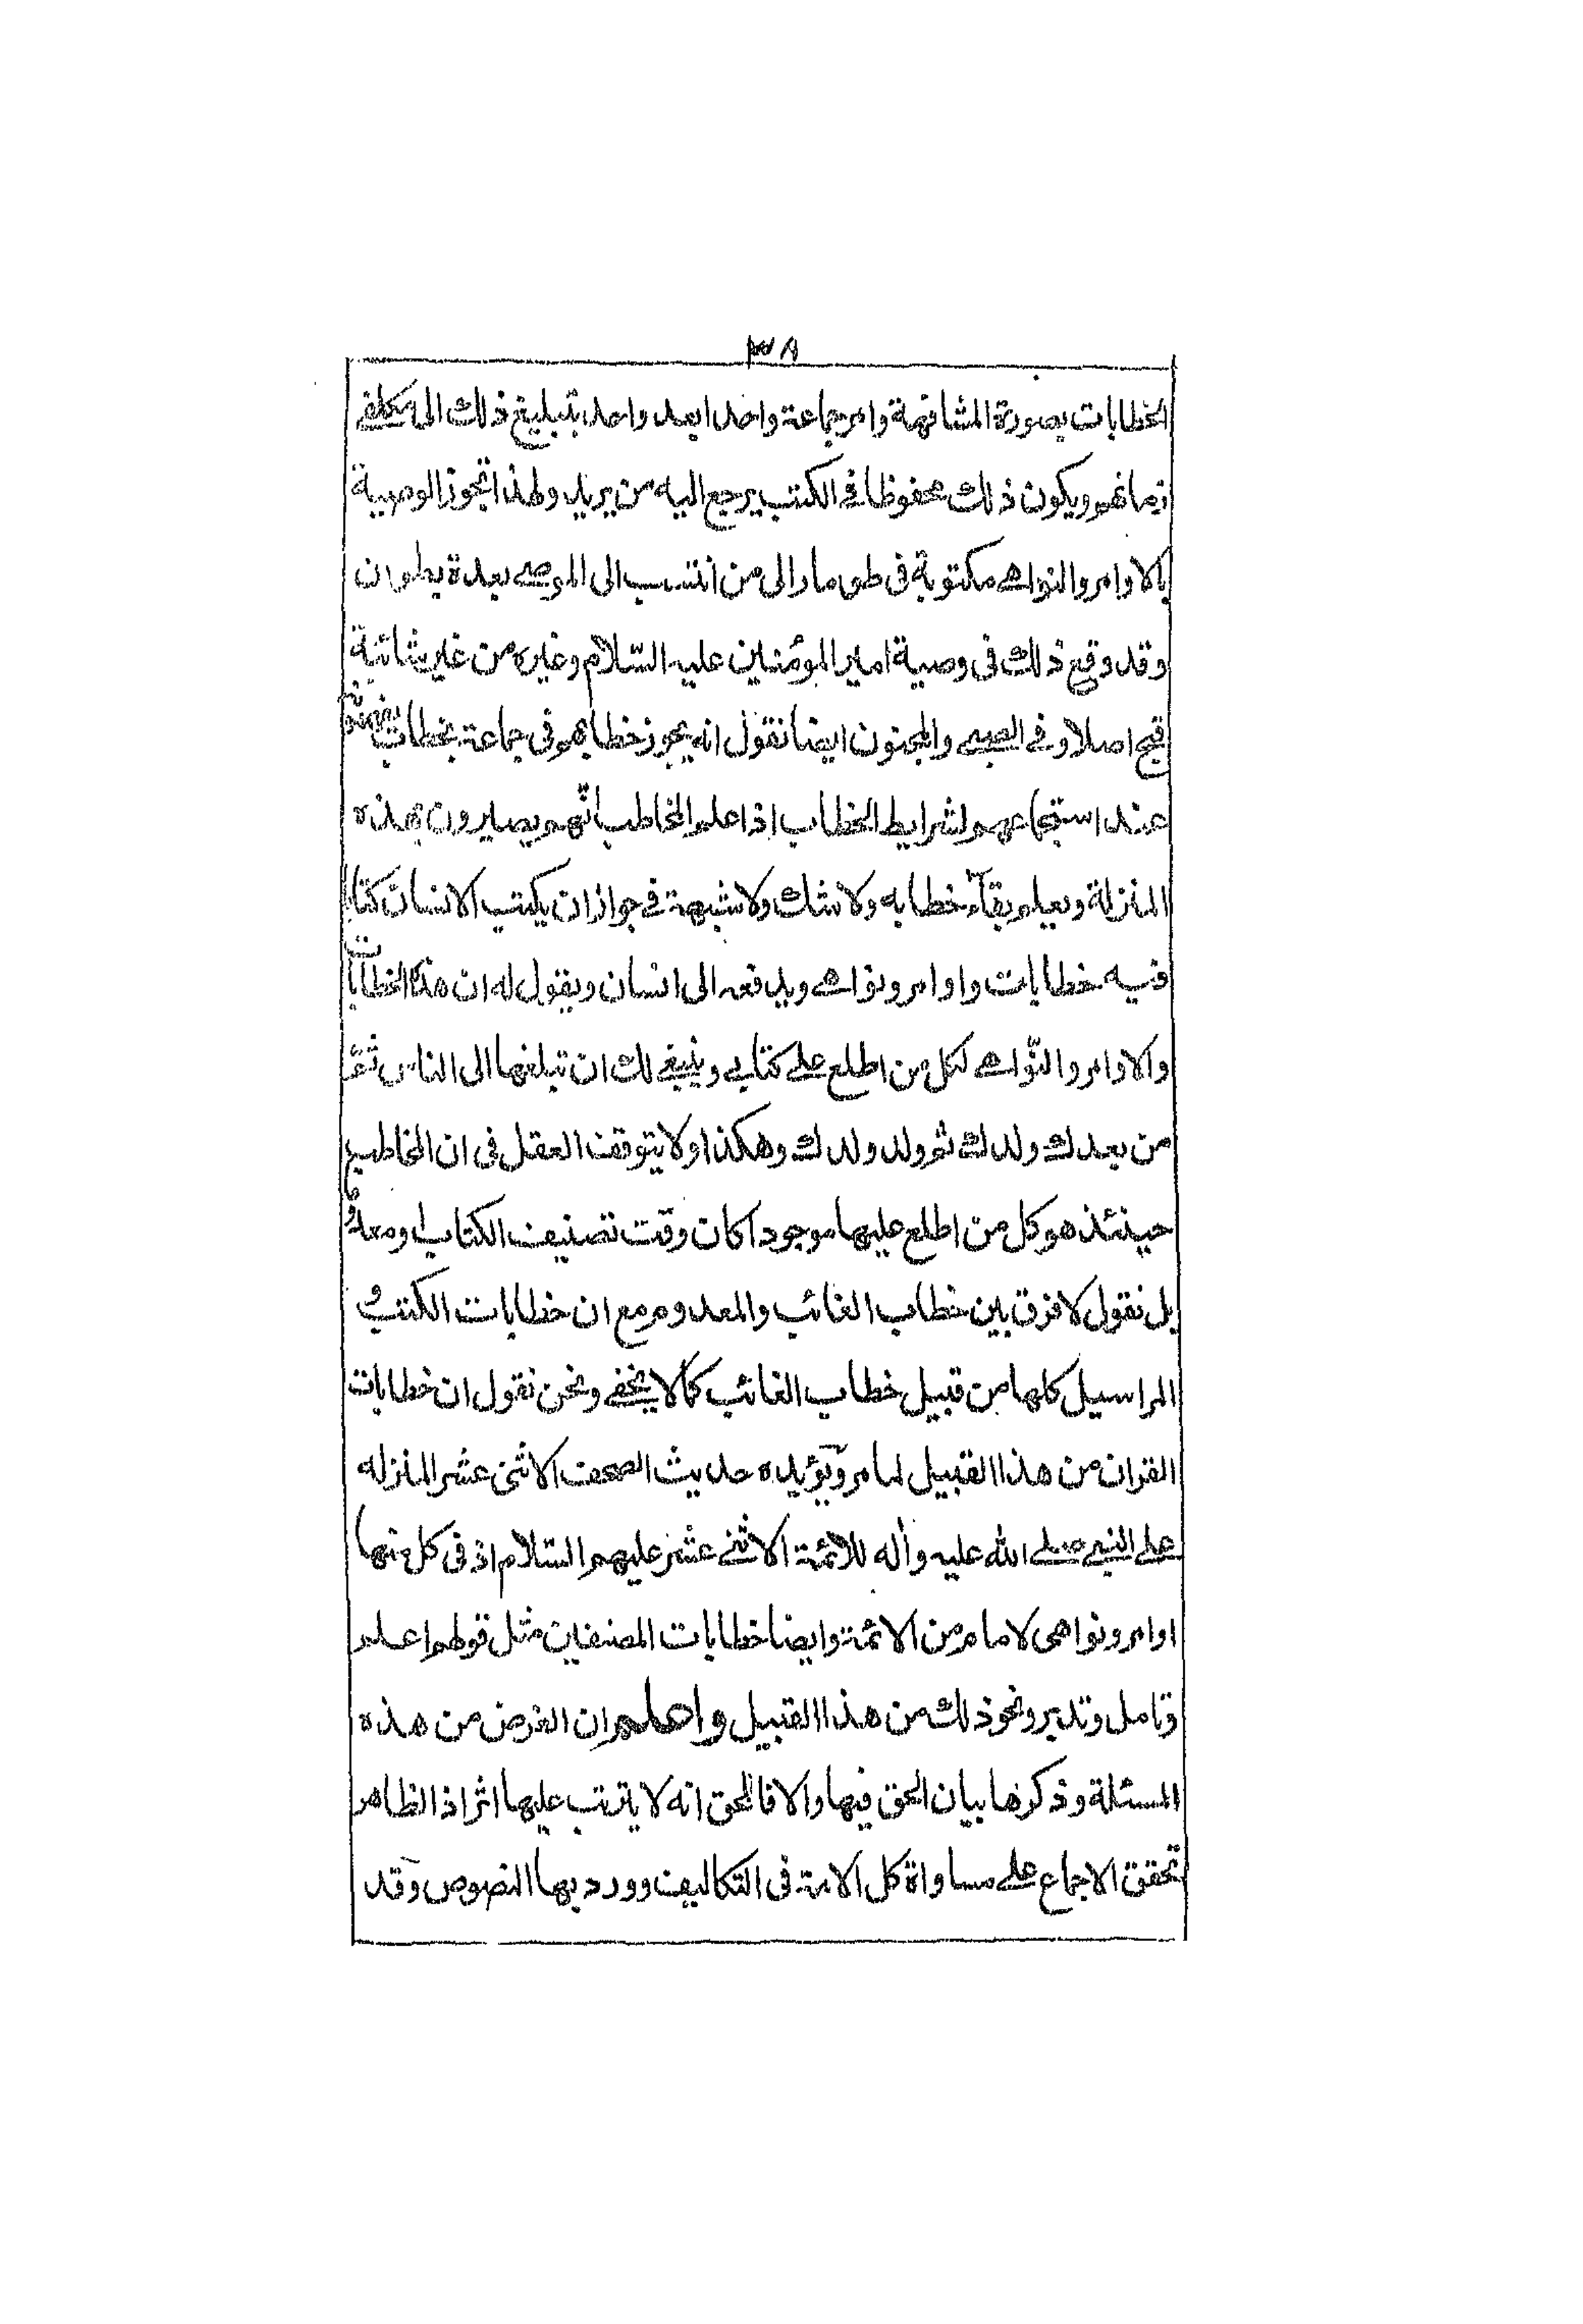 ٣٨
الخطابات بصورة المشافهة وامر جماعة واحدا بعد واحد بتبليغ ذلك الى مكلفى
زمانهم ويكون ذلك محفوظا فى الكتب يرجع اليه من يريد ولهذا تجوز الوصية
بالاوامر والنواهى مكتوبة فى طومار الى من انتسب الى الموصى بعدة بطون
وقد وقع ذلك فى وصية امير المؤمنين عليه السّلام وغيره من غير شائبة
قبح اصلا وفى الصبى والمجنون ايضا نقول انه يجوز خطابهم فى جماعة بخطاب
عند استجماعهم لشرايط الخطاب اذا علم المخاطب انّهم يصيرون بهذه
المنزلة ويعلم بقاۤء خطابه ولا شك ولا شبهة فى جواز ان يكتب الانسان كتابا
فيه خطابات واوامر ونواهى ويدفعه الى انسان ويقول له ان هذه الخطابات
والاوامر والنّواهى لكل من اطلع على كتابى وينبغى لك ان تبلغها الى الناس ثمّ
من بعدك ولدك ثم ولد ولدك وهكذا ولا يتوقف العقل فى ان المخاطب
حينئذ هو كل من اطلع عليها موجودا كان وقت تصنيف الكتاب او معدوما
بل نقول لا فرق بين خطاب الغائب والمعدوم مع ان خطابات الكتب و
المراسيل كلها من قبيل خطاب الغائب كما لا يخفى ونحن نقول ان خطابات
القران من هذا القبيل لما مر ويؤيده حديث الصحف الاثنى عشر المنزله
على النبى صلى الله عليه واله للائمة الاثنى عشر عليهم السّلام اذ فى كل منها
اوامر ونواهى لامام من الائمة وايضا خطابات المصنفين مثل قولهم اعلم
وتامل وتدبر ونحو ذلك من هذا القبيل واعلم ان الغرض من هذه
المسئلة وذكرها بيان الحق فيها والا فالحق انه لا يترتب عليها اثر اذ الظاهر
تحقق الاجماع على مساواة كل الامة فى التكاليف وورد بها النصوص وقد